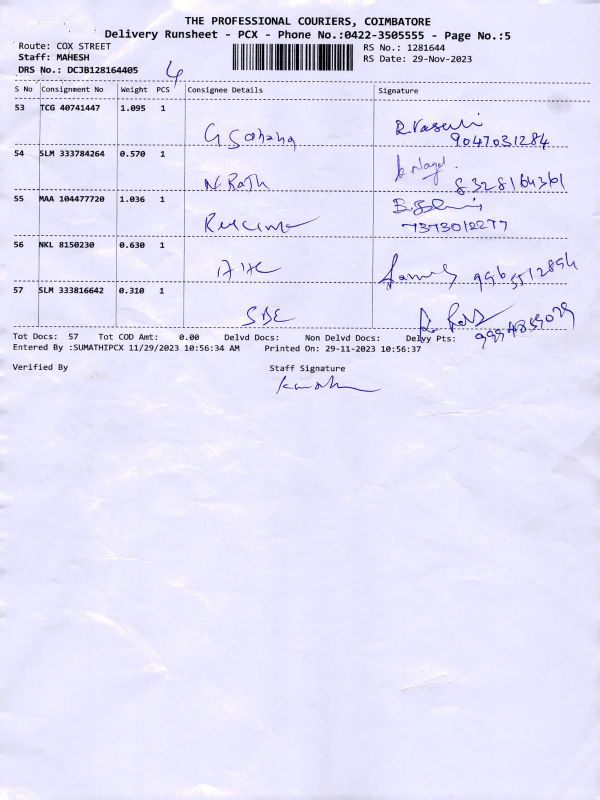 THE PROFESSIONAL COURIERS, COIMBATORE
Delivery Runsheet - PCX - Phone No.:0422-3505555 - Page No.:5
Route: COX STREET RS No.: 1281644
Staff: MAHESH RS Date: 29-Nov-2023
DRS No.: DCJB128164405
S No Consignment No Weight PCS Consignee Details Signature
53 TCG 40741447 1.095 1
G Sahana 9047031284
54 SLM 333784264 0.570 1
N. Rath
55 MAA 104477720 1.036 1
7373012277
56 NKL 8150230 0.630 1
9965512894
57 SLM 333816642 0.310 1
Tot Docs: 57 Tot COD Amt: 0.00 Delvd Docs: Non Delvd Docs: Delvy Pts:
Entered By :SUMATHIPCX 11/29/2023 10:56:34 AM Printed On: 29-11-2023 10:56:37
Verified By Staff Signature